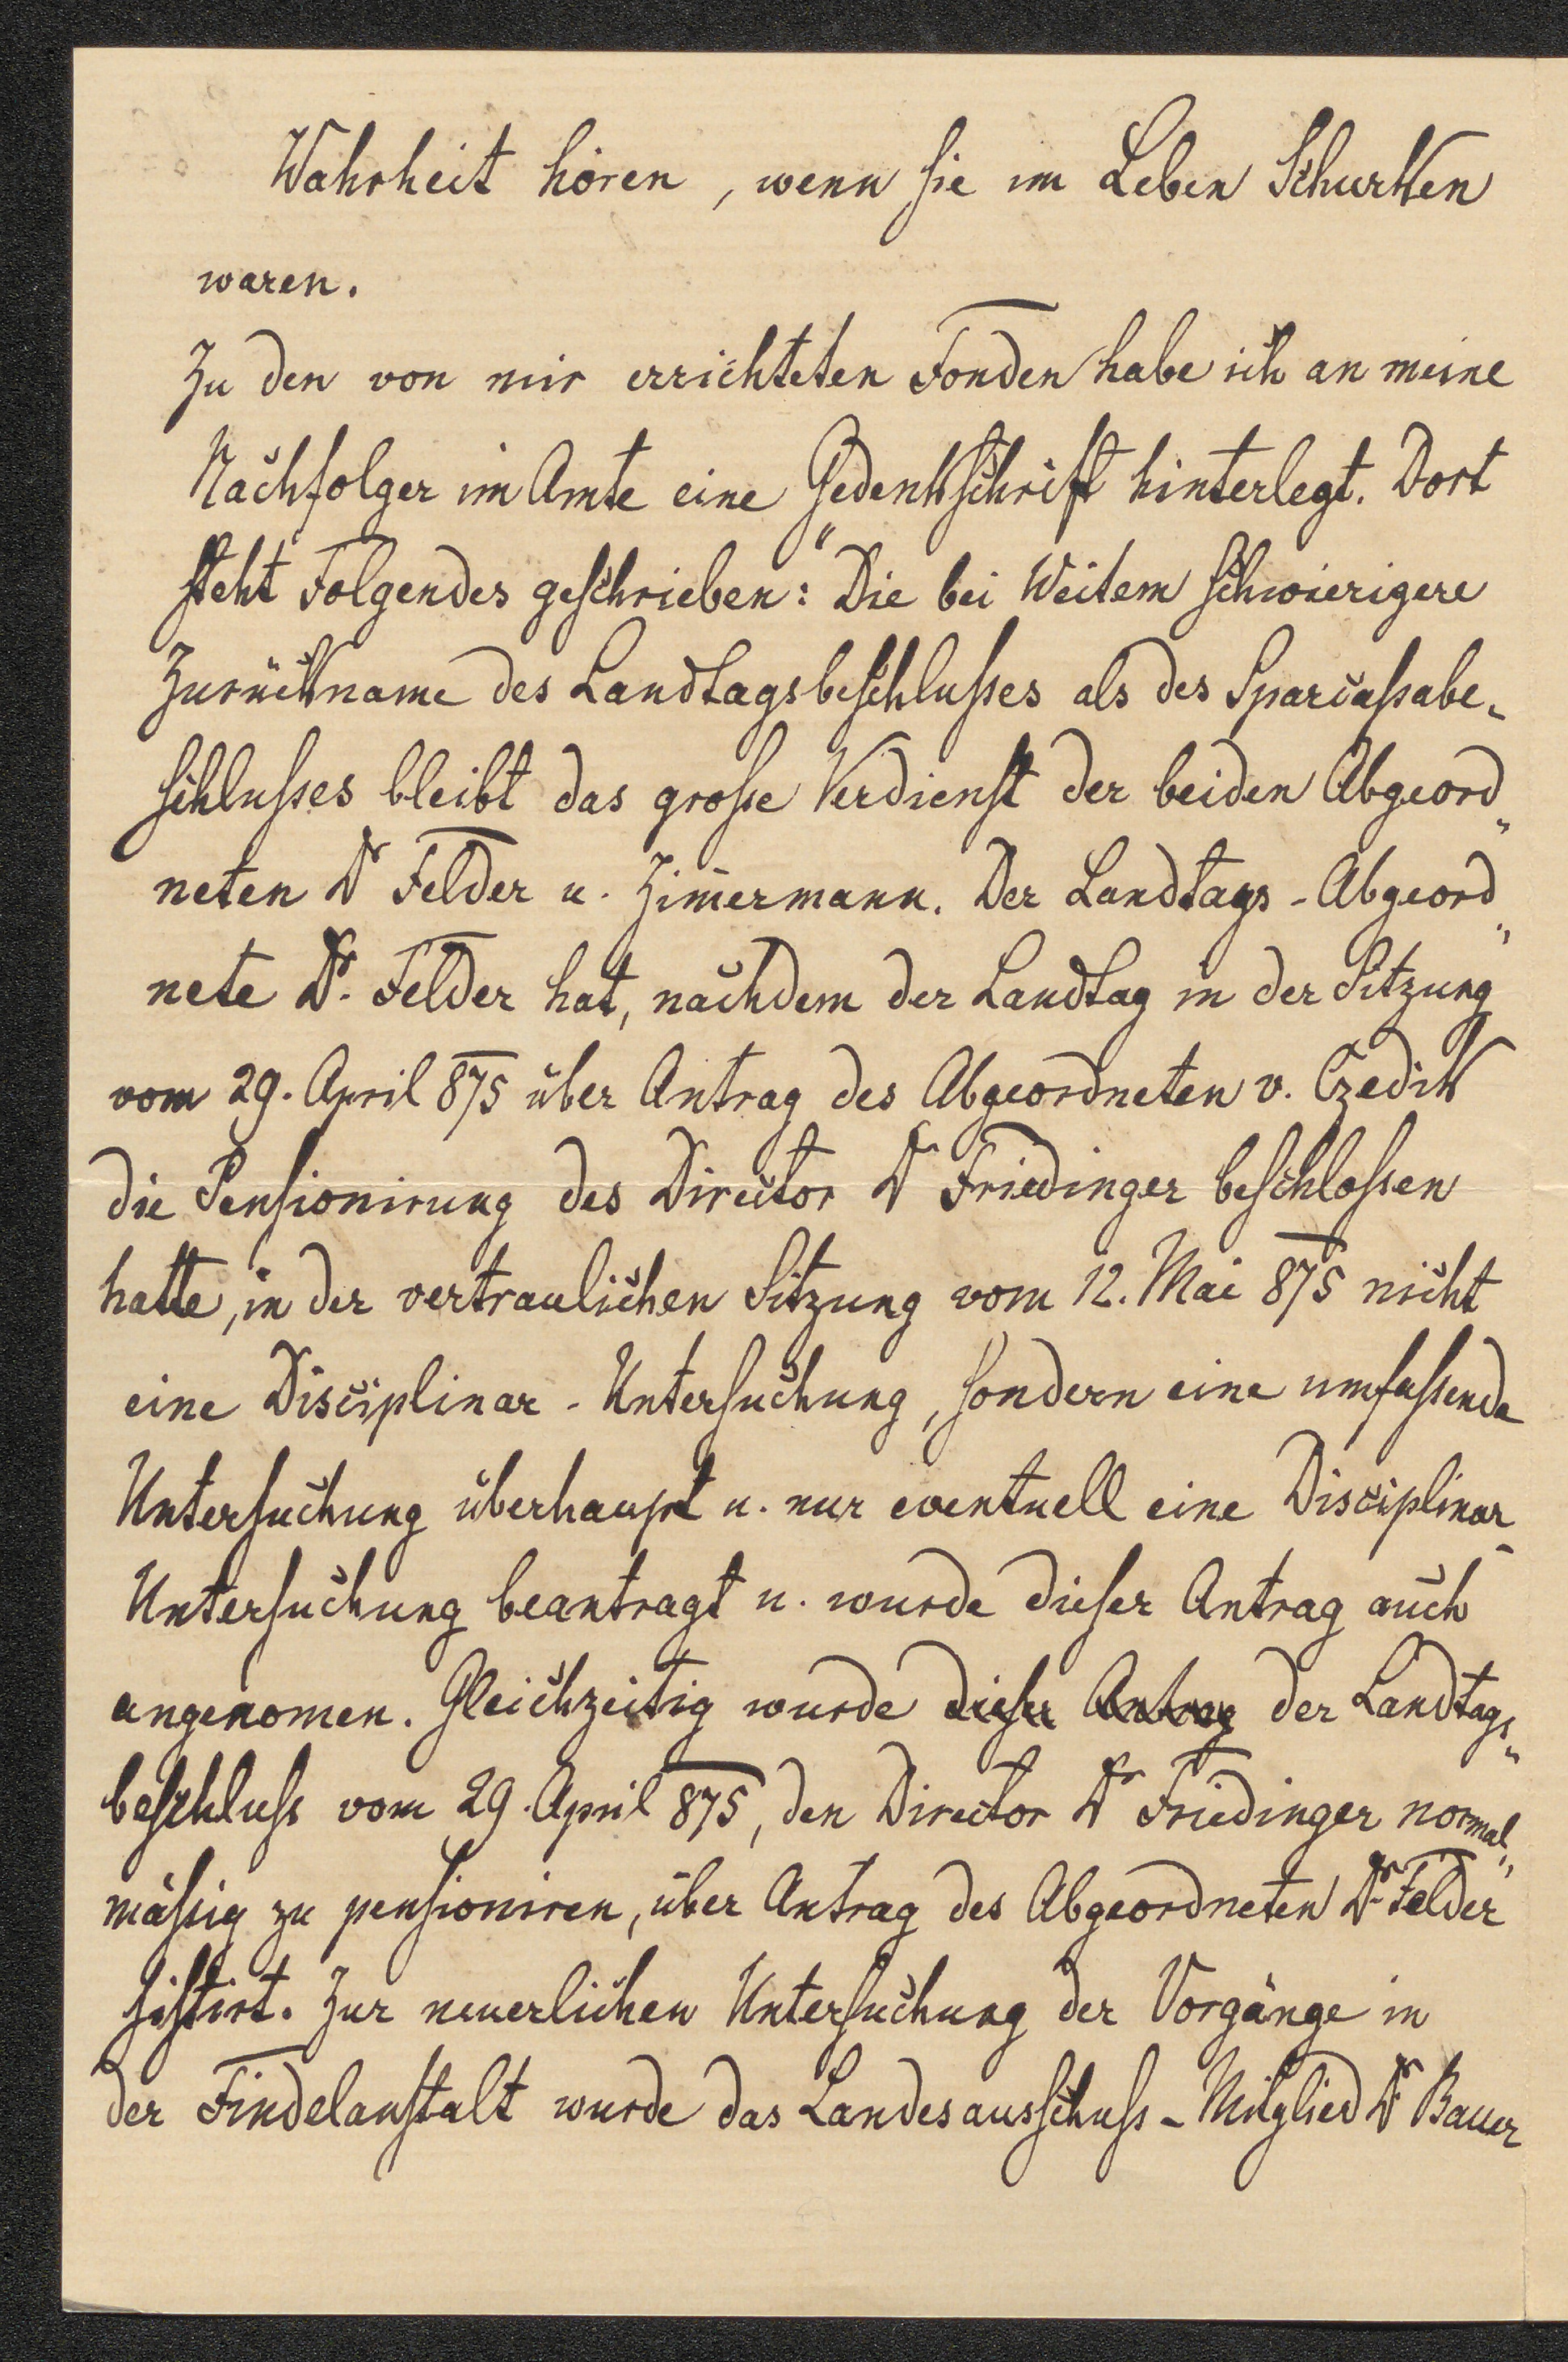 Wahrheit hören, wenn sie im Leben Schurken
waren.
Zu den von mir errichteten Fonden habe ich an meine
Nachfolger im Amte eine Gedenkschrift hinterlegt. Dort
steht Folgendes geschrieben: "Die bei Weitem schwierigere
Zurückname des Landtagsbeschlusses als des Sparcassabe-
schlusses bleibt das grosse Verdienst der beiden Abgeord„
neten Dr Felder u. Zim̄ermann. Der Landtags-Abgeord„
nete Dr. Felder hat, nachdem der Landtag in der Sitzung
vom 29. April 875 über Antrag des Abgeordneten v. Czedik
die Pensionirung des Director Dr Friedinger beschlossen
hatte, in der vertraulichen Sitzung vom 12. Mai 875 nicht
eine Disciplinar-Untersuchung, sondern eine umfassende
Untersuchung überhaupt u. nur eventuell eine Disciplinar-
Untersuchung beantragt u. wurde dieser Antrag auch
angenomen. Gleichzeitig wurde dieser Antrag der Landtags„
beschluss vom 29. April 875, den Director Dr Friedinger normal„
mässig zu pensioniren, über Antrag des Abgeordneten Dr. Felder
sistirt. Zur neuerlichen Untersuchung der Vorgänge in
der Findelanstalt wurde das Landesausschuss-Mitglied Dr Bauer